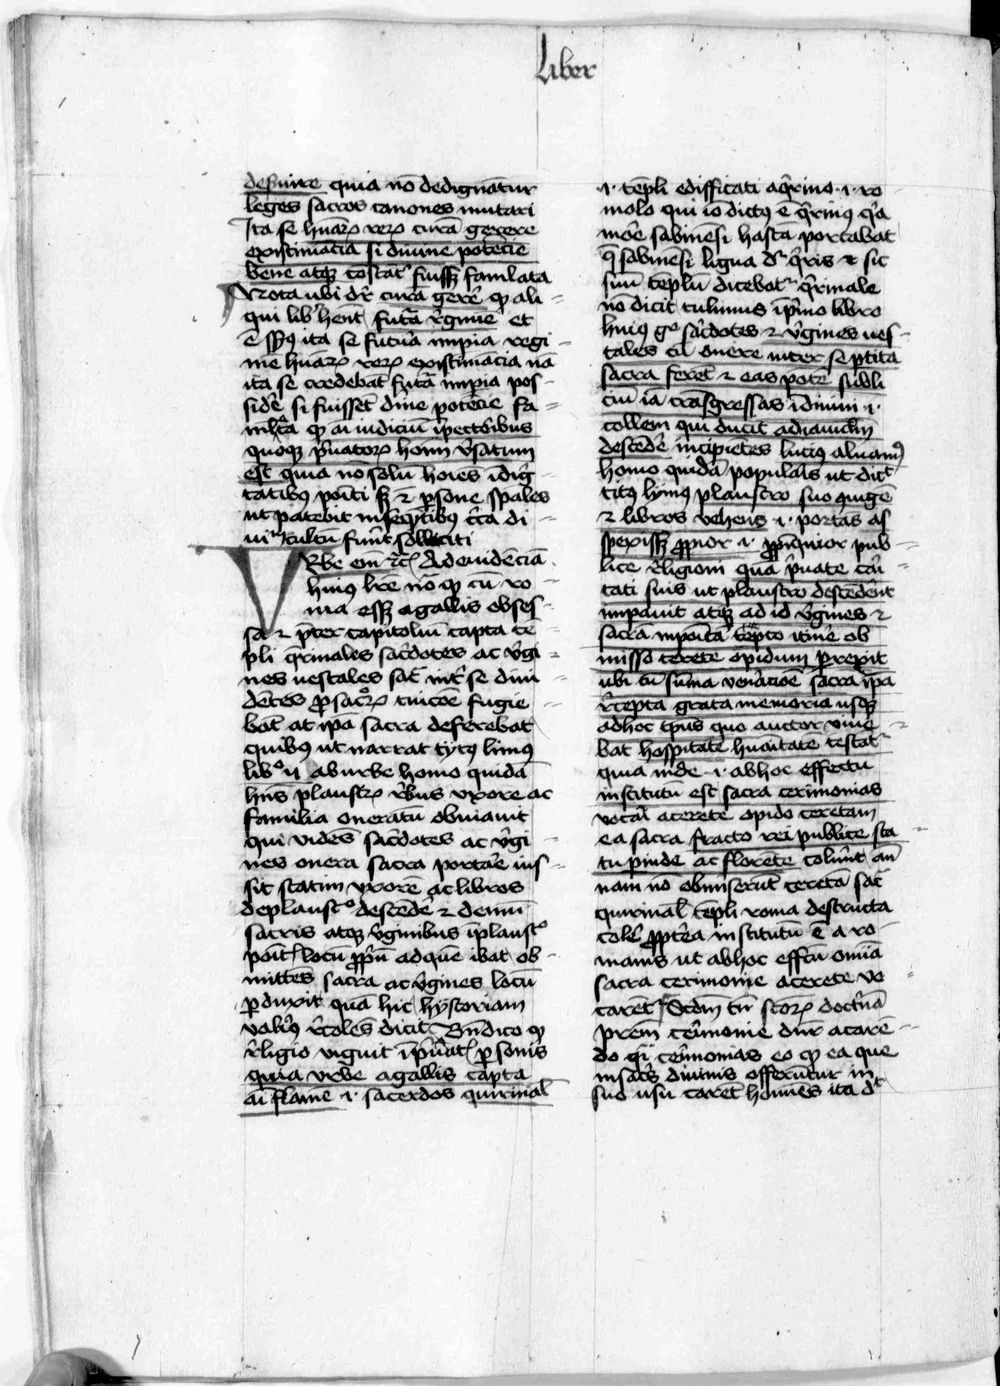 Liber
desinire quia nō dedignātur
leges sacros canones mutari
Ita se huāꝝ reꝝ curā gerere
existimacia si diuine potēcie
bene atqꝫ cōstāt fuissꝫ famlata
Nota ubi dr̄ curā gerē ꝙ ali
qui lib' hent futā r̄gime et
ē ssꝰ ita se futura impia regi
mē huāꝝ reꝝ existimacia nā
ita se credebāt futā impia pos
sidē si fuissēt dīne potēcie fa
ml'ta ꝙ aī iudiciū īpectoribus
quoqꝫ pͥuatoꝝ hoīm v̄satum
est quia no solū hoies īdig
tatibꝰ poīti sꝫ ⁊ ꝑsone spales
ut patebit in seqn̄tibꝰ cc̄a di
uiⁿ cultū fuīt solliciti
Vrbe em̄ rc̄ Ad euidēciā
huiꝰ lr̄e nō ꝙ cū ro
ma essꝫ a gallis obses
sa ⁊ pͥter capitoliū capta tē
pli qͥrinales sacdotes ac v̄gi
nes uestales sac̄ int̄ se diui
dētes ꝑ sacꝝ tuicōe fugie
bāt at ipa sacra deferebāt
quibꝰ ut narrat tytꝰ liuiꝰ
libº v ab urbe homo quidā
hn̄s plaustꝝ r̄bus vxore ac
familia oneratū obuiauit
qui vidēs sacdotes ac v̄gi
nes onera sacra portāe ius
sit statim vxorē ac libros
de plaustº descēdē ⁊ demū
sacris atqꝫ v̄ginibus ī plaustº
poīt locū ꝓpn̄ ad quē ibat ob
mittēs sacra ac v̄gines locū
ꝑduxit quā hic hystoriam
valiꝰ r̄colēs dicit Bn̄ dico ꝙ
r̄ligio viguit ī pͥuāt ꝑsonis
quia vrbe a gallis capta
aī flame .i. sacerdos quirinal
.i. tēpli edifficati a qͥrino .i. ro
molo qui iō dictꝰ ē qͥrinꝰ qͥa
moē sabinēsi hastā portabat
q̄ sabinēsi ligua dr̄ qͥris ⁊ sic
suū tēplū dicebatʳ qͥrinale
no dicit tulinus ī pͥmo libro
huiꝰ gº sacdotes ⁊ v̄gines ues
tales cū onere inter se ꝑtita
sacra ferēt ⁊ eas pōte subli
ciū iā trāsgressas ī diuini .i.
collem qui ducit ad ianiclū
descēdē incipiētes lucius aluanꝰ
homo quidā popularis ut dict
titꝰ liuiꝰ plaustro suo iugē
⁊ libros vehens .i. portās as
spexissꝫ ꝓpior .i. ꝓpīquior pub
lice r̄ligioni quā pͥuate cai
tati suis ut plaustro descēderēt
impauit atqꝫ ad id v̄gines ⁊
sacra inpoita cepto itinē ob
misso cerete opidum ꝑrexit
ubi cū suma venacōe sacra ipa
r̄cepta grata memoria usqꝫ
adhoc tpus quo auctor viue
bat hospitalē huāitatē testat
quia inde .i. ab hoc effectu
institutu est sacra cerimonias
vocari a cerete opido ceretani
ea sacra fracto rei publice sta
tu pinde ac florēte coluerūt nā
nam nō obmiserūt ceretāi sac̄
quirinal' tēpli roma destructa
colē ꝓpterea institutū ē a ro
manis ut ab hoc effectu omīa
sacra cerimonie a cerete vo
carēt Scdm tn̄ scōꝝ doctrinā
pͥrem cerimonie dnr̄ a carē
do q̄i cerimonias eo ꝙ ea que
in sacrͥs diuinis offeruntur in
suo usu carēt homines ita dt̄